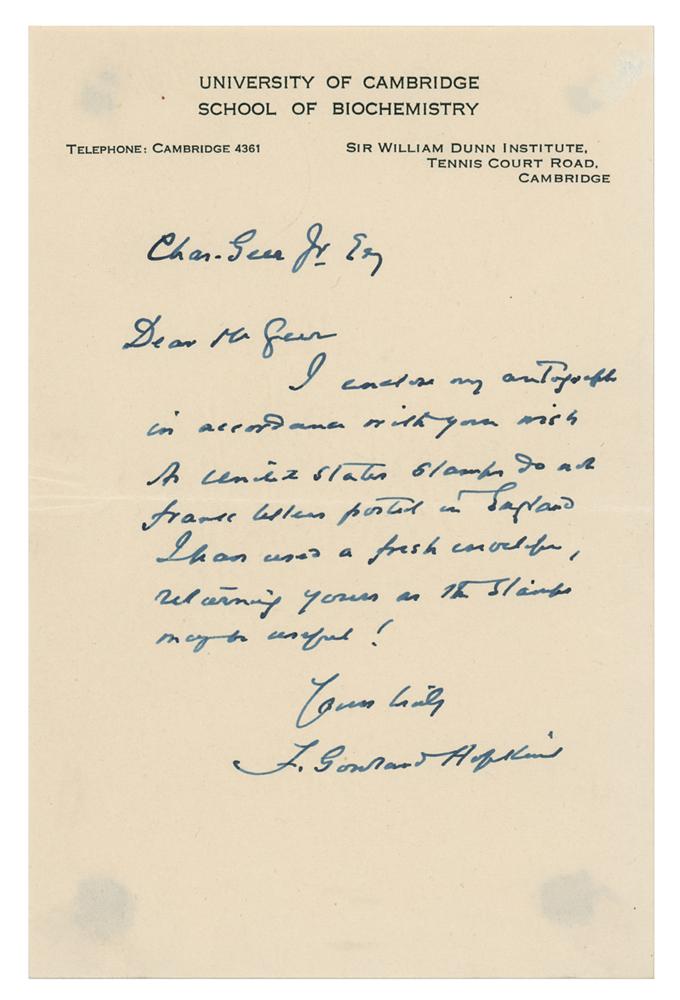 UNIVERSITY OF CAMBRIDGE
SCHOOL OF BIOCHEMISTRY
TELEPHONE: CAMBRIDGE 4361
SIR WILLIAM DUNN INSTITUTE,
TENNIS COURT ROAD,
CAMBRIDGE
Chas. Geer Jr Esq
Dear Mr Geer
I enclose my autograph
in accordance with your wish
As United States Stamps do not
frank letters posted in England
I have used a fresh envelope,
returning yours as the Stamps
may be useful!
Yours truly
F. Gowland Hopkins